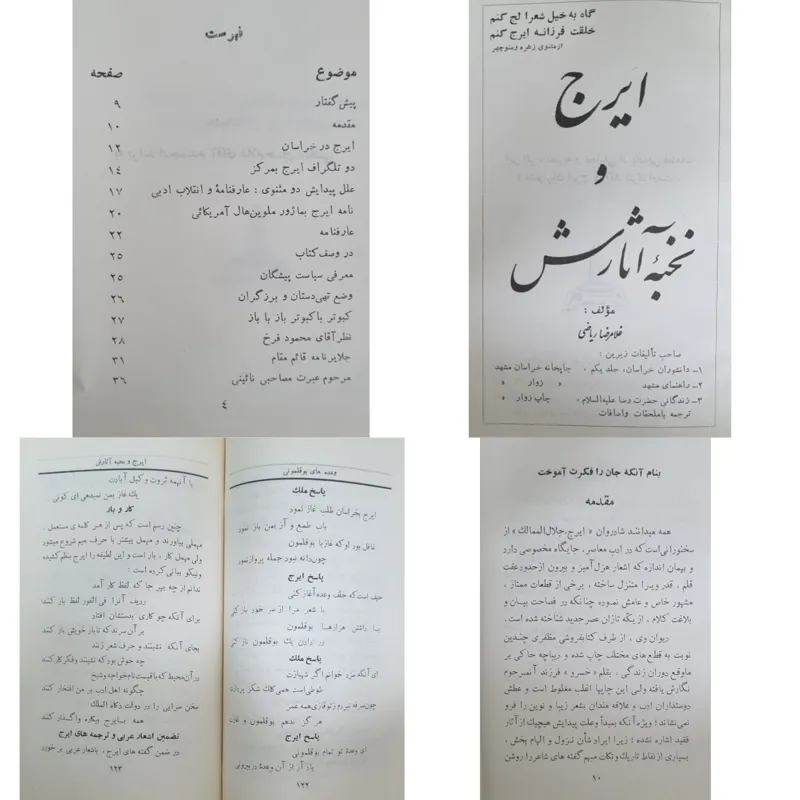 فهرست
موضوع صفحه
پیش گفتار ۹
مقدمه ۱۰
ایرج در خراسان ۱۲
دو تلگراف ایرج بمرکز ۱۴
علل پیدایش دو مثنوی : عارفنامهٔ و انقلاب ادبی ۱۷
نامه ایرج بماژور ملوین‌هال آمریکائی ۲۰
عارفنامه ۲۲
در وصف کتاب ۲۵
معرفی سیاست پیشگان ۲۵
وضع تهی‌دستان و برزگران ۲۶
کبوتر با کبوتر باز با باز ۲۷
نظر آقای محمود فرخ ۲۸
جلایرنامه قائم مقام ۳۱
مرحوم عبرت مصاحبی نائینی ۳۶
۴
گاه به خیل شعرا لج کنم
خلقت فرزانه ایرج کنم
از مثنوی زهره و منوچهر
ایرج
و
نخبهٔ آثارش
مؤلف :
غلامرضا ریاضی
صاحب تألیفات زیرین :
۱ـ دانشوران خراسان، جلد یکم ، چاپخانه خراسان مشهد
۲ـ راهنمای مشهد « زوار »
۳ـ زندگانی حضرت رضا علیه‌السلام ، چاپ زوار »
ترجمه با ملحقات و اضافات
ایرج و نخبه آثارش
با آنهمه ثروت و کیل آبادت
یک غاز بمن نمیدهی ای کونی
کار و بار
چنین رسم است که پس از هر کلمه‌ی مستعمل
مهملی بیاورند و مهمل بیشتر با حرف میم شروع میشود
ولی مهمل کار ، بار است و این لطیفه را ایرج بنظم کشیده
و نیکو بیانی کرده است :
ندانم از چه بهر جا که لفظ کار آمد
ردیف آنرا فی الفور لفظ بار کنند
برای آنکه چو کاری بدستشان افتاد
بر آن سرند که تا بار خویش بار کنند
بجای آنکه نشینند و حرف شعر زنند
چه خوش بود که نشینند و فکر کار کنند
در آن محیط که باقیست نام خواجه و شیخ
چگونه اهل ادب بر من افتخار کنند
سخن سرایی را در روات زکاه الملک
همه بایرج بیکاره واگذار کنند
تضمین اشعار عربی و ترجمه های ایرج
در ضمن گفته های ایرج، باشعار عربی بر خورد
۱۲۳
وعده های بوقلمونی
پاسخ ملک
ایرج بخراسان طلب غاز نمود
باب طمع و آز بمن باز نمود
غافل بود او که غاز با بوقلمون
چون دانه نبود جمله پرواز نمود
پاسخ ایرج
حیف است که خلف وعده آغاز کنی
با شعر مرا از سر خود باز کنی
با داشتن هزارها بوقلمون
در دادن یک بوقلمون ناز کنی
پاسخ ملک
ای آنکه سزد خوانم اگر شهبازت
طوطی است همی کلک شکر پردازت
چون صرفه نبرم ز توقازی همه عمر
هر گز ندهم بوقلمون و غازت
پاسخ ایرج
ای وعدهٔ تو تمام بوقلمونی
باز آز از آن وعدهٔ در بیرونی
۱۲۲
بنام آنکه جان را فکرت آموخت
مقدمه
همه میدانند شادروان « ایرج، جلال‌الممالک » از
سخنورانی است که در ادب معاصر، جایگاه مخصوصی دارد
و بهمان اندازه که اشعار هزل‌آمیز و بیرون از حدود عفت
قلم ، قدر ویرا متنزل ساخته ، برخی از قطعات ممتاز ،
مشهور خاص و عامش نموده چنانکه در فصاحت بیان و
بلاغت کلام . از یکه تازان عصر جدید شناخته شده است.
دیوان وی ، از طرف کتابفروشی مظفری چندین
نوبت به قطع‌های مختلف چاپ شده و دیباچه حاکی بر
ماوقع دوران زندگی ، بقلم «خسرو » فرزند آنمرحوم
نگارش یافته ولی این چاپها اغلب مغلوط است و عطش
دوستداران ادب و علاقه مندان بشعر زیبا و نوین را فرو
نمی‌نشاند؛ ویژه آنکه بمبدأ وعلت پیدایش هیچیک از آثار
فقید اشاره نشده ؛ زیرا ایراد شأن نزول و الهام بخش ،
بسیاری از نقاط تاریک و نکات مبهم گفته های شاعر را روشن
۱۰